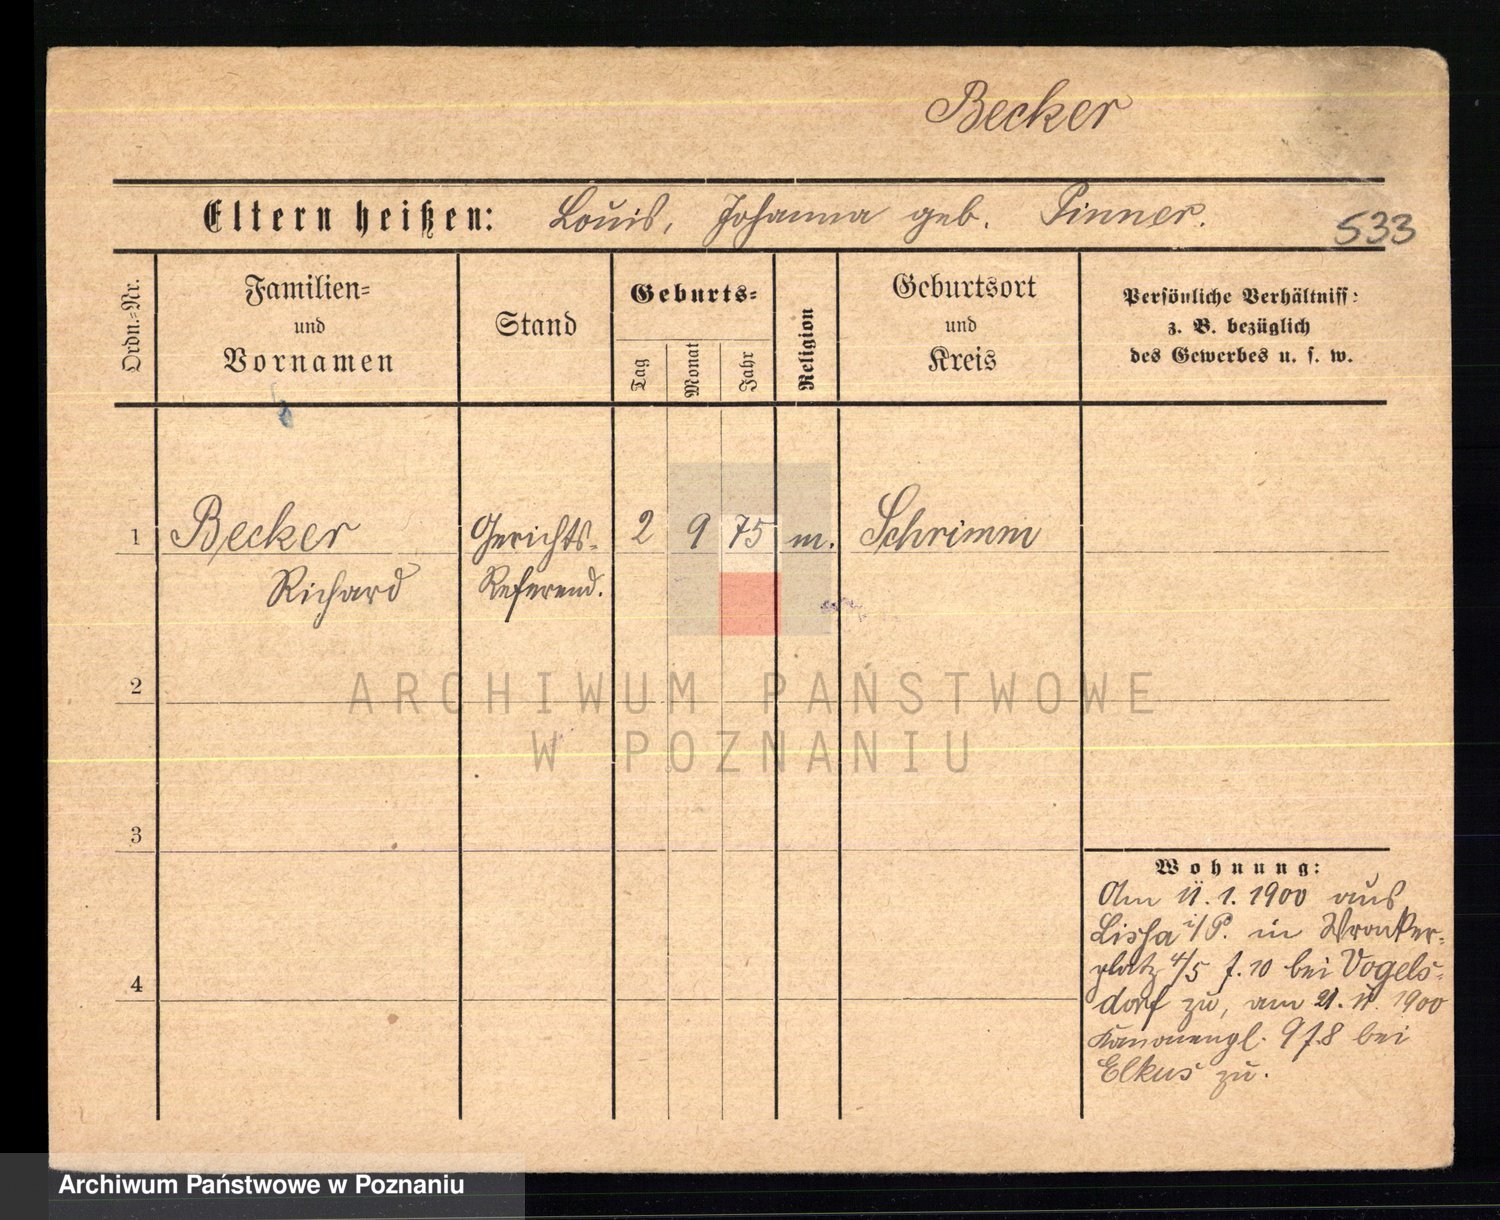 Becker
Eltern heißen: Louis, Johanna geb. Pinner.
533
Ordn.=Nr.
Familien=
und
Vornamen
Stand
Geburts=
Tag
Monat
Jahr
Religion
Geburtsort
und
Kreis
Persönliche Verhältniss:
z. B. bezüglich
des Gewerbes u. s. w.
1 Becker Gerichts- 2 9 75 m. Schrimm
Richard Referend.
2
ARCHIWUM PAŃSTWOWE
W POZNANIU
3
4
Wohnung:
Am 11. 1. 1900 aus
Lissa i/P. in Wronker-
platz 4/5 f. 10 bei Vogels-
dorf zu, am 21. 1900
Kanonengl. 9 f. 8 bei
Elkus zu.
Archiwum Państwowe w Poznaniu